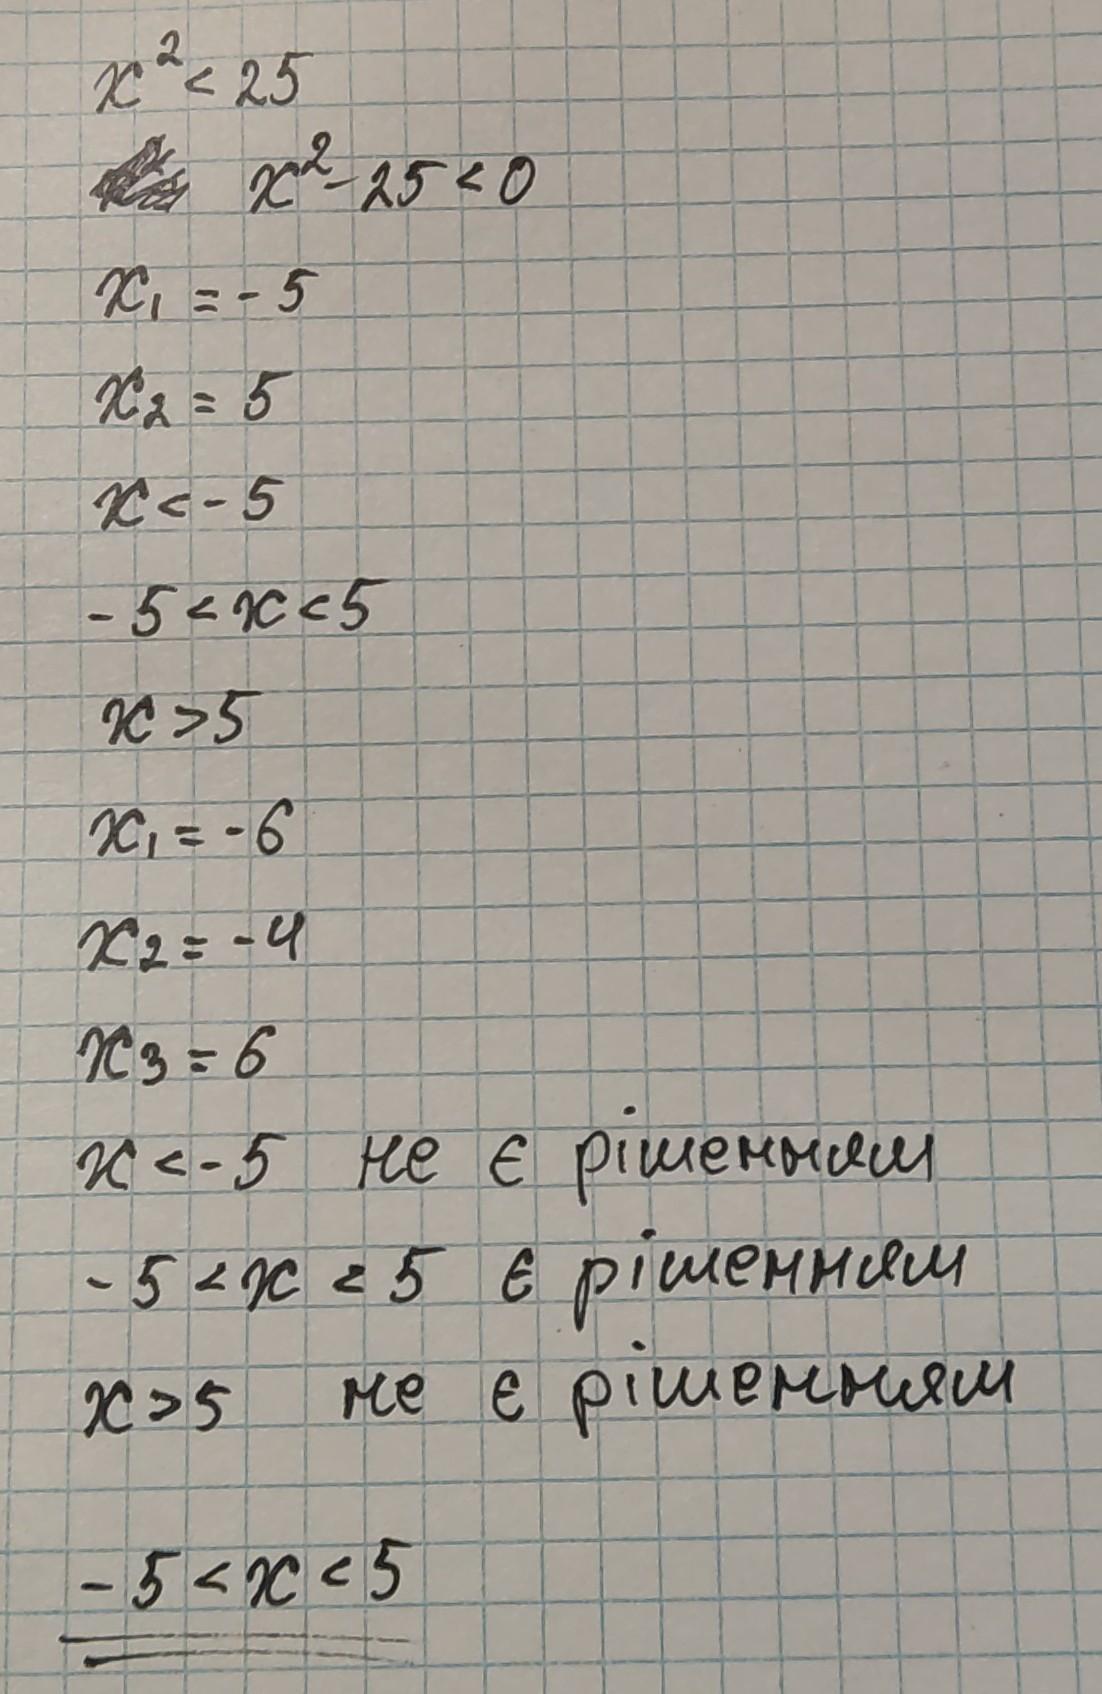 x² < 25
x² - 25 < 0
x₁ = -5
x₂ = 5
x < -5
-5 < x < 5
x > 5
x₁ = -6
x₂ = -4
x₃ = 6
x < -5 не є рішенням
-5 < x < 5 є рішенням
x > 5 не є рішенням
-5 < x < 5